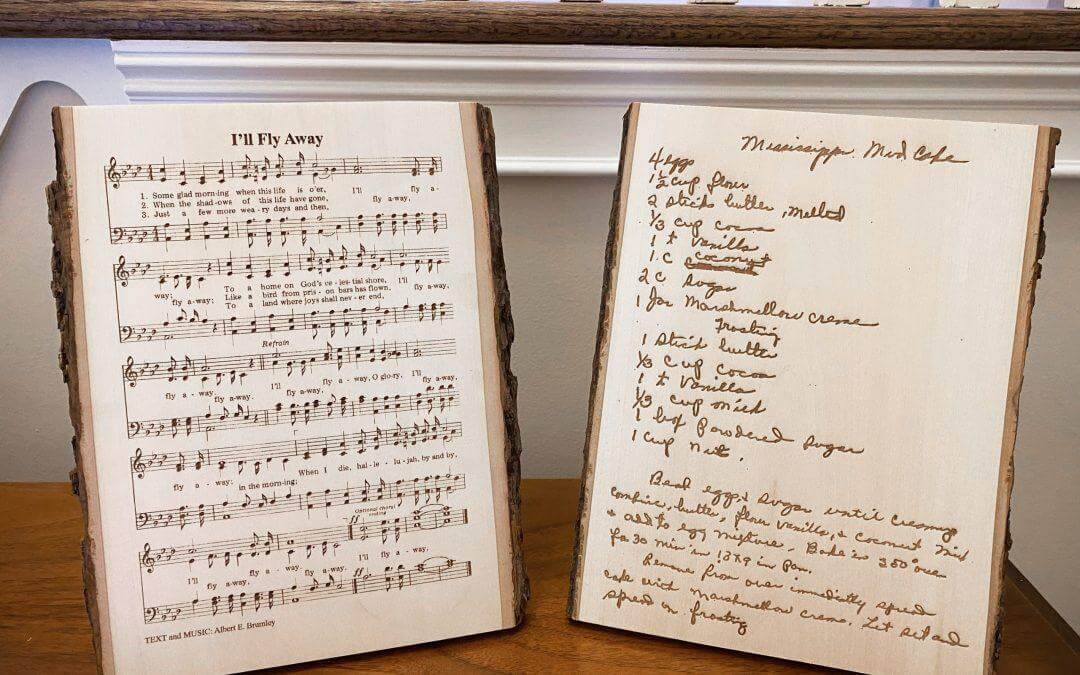 I'll Fly Away
1. Some glad morn-ing when this life is o'er, I'll fly a-
2. When the shad-ows of this life have gone, fly a-way,
3. Just a few more wea-ry days and then,
way; To a home on God's ce-les-tial shore, I'll
fly a-way; Like a bird from pris-on bars has flown, fly a-way,
To a land where joys shall nev-er end,
Refrain
fly a-way. I'll fly a-way, O glo-ry, I'll
fly a-way, fly a-way,
When I die, hal-le-lu-jah, by and by,
fly a-way; in the morn-ing;
Optional choral ending
I'll fly a-way. I'll fly a-way.
fly a-way.
TEXT and MUSIC: Albert E. Brumley
Mississippi Mud Cake
4 eggs
1 1/2 cup flour
2 sticks butter, melted
1/3 cup cocoa
1 t vanilla
1 C coconut
2 C sugar
1 jar Marshmellow creme
Frosting
1 stick butter
1/3 cup cocoa
1 t vanilla
1/3 cup milk
1 box Powdered sugar
1 cup nuts.
Beat eggs & sugar until creamy
combine, butter, flour vanilla, & coconut mix
& add to egg mixture. Bake in 350° oven
for 30 min in 13x9 in pan.
Remove from oven immediatly spread
cake with Marshmellow creme. Let set and
spread on frosting